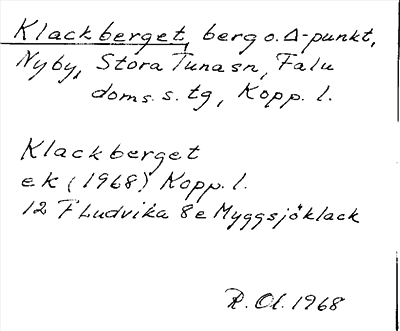 Klackberget, berg o. Δ-punkt,
Nyby, Stora Tuna sn, Falu
doms. s. tg, Kopp. l.
Klackberget
ek (1968) Kopp. l.
12 F Ludvika 8 e Myggsjöklack
R. Ol. 1968